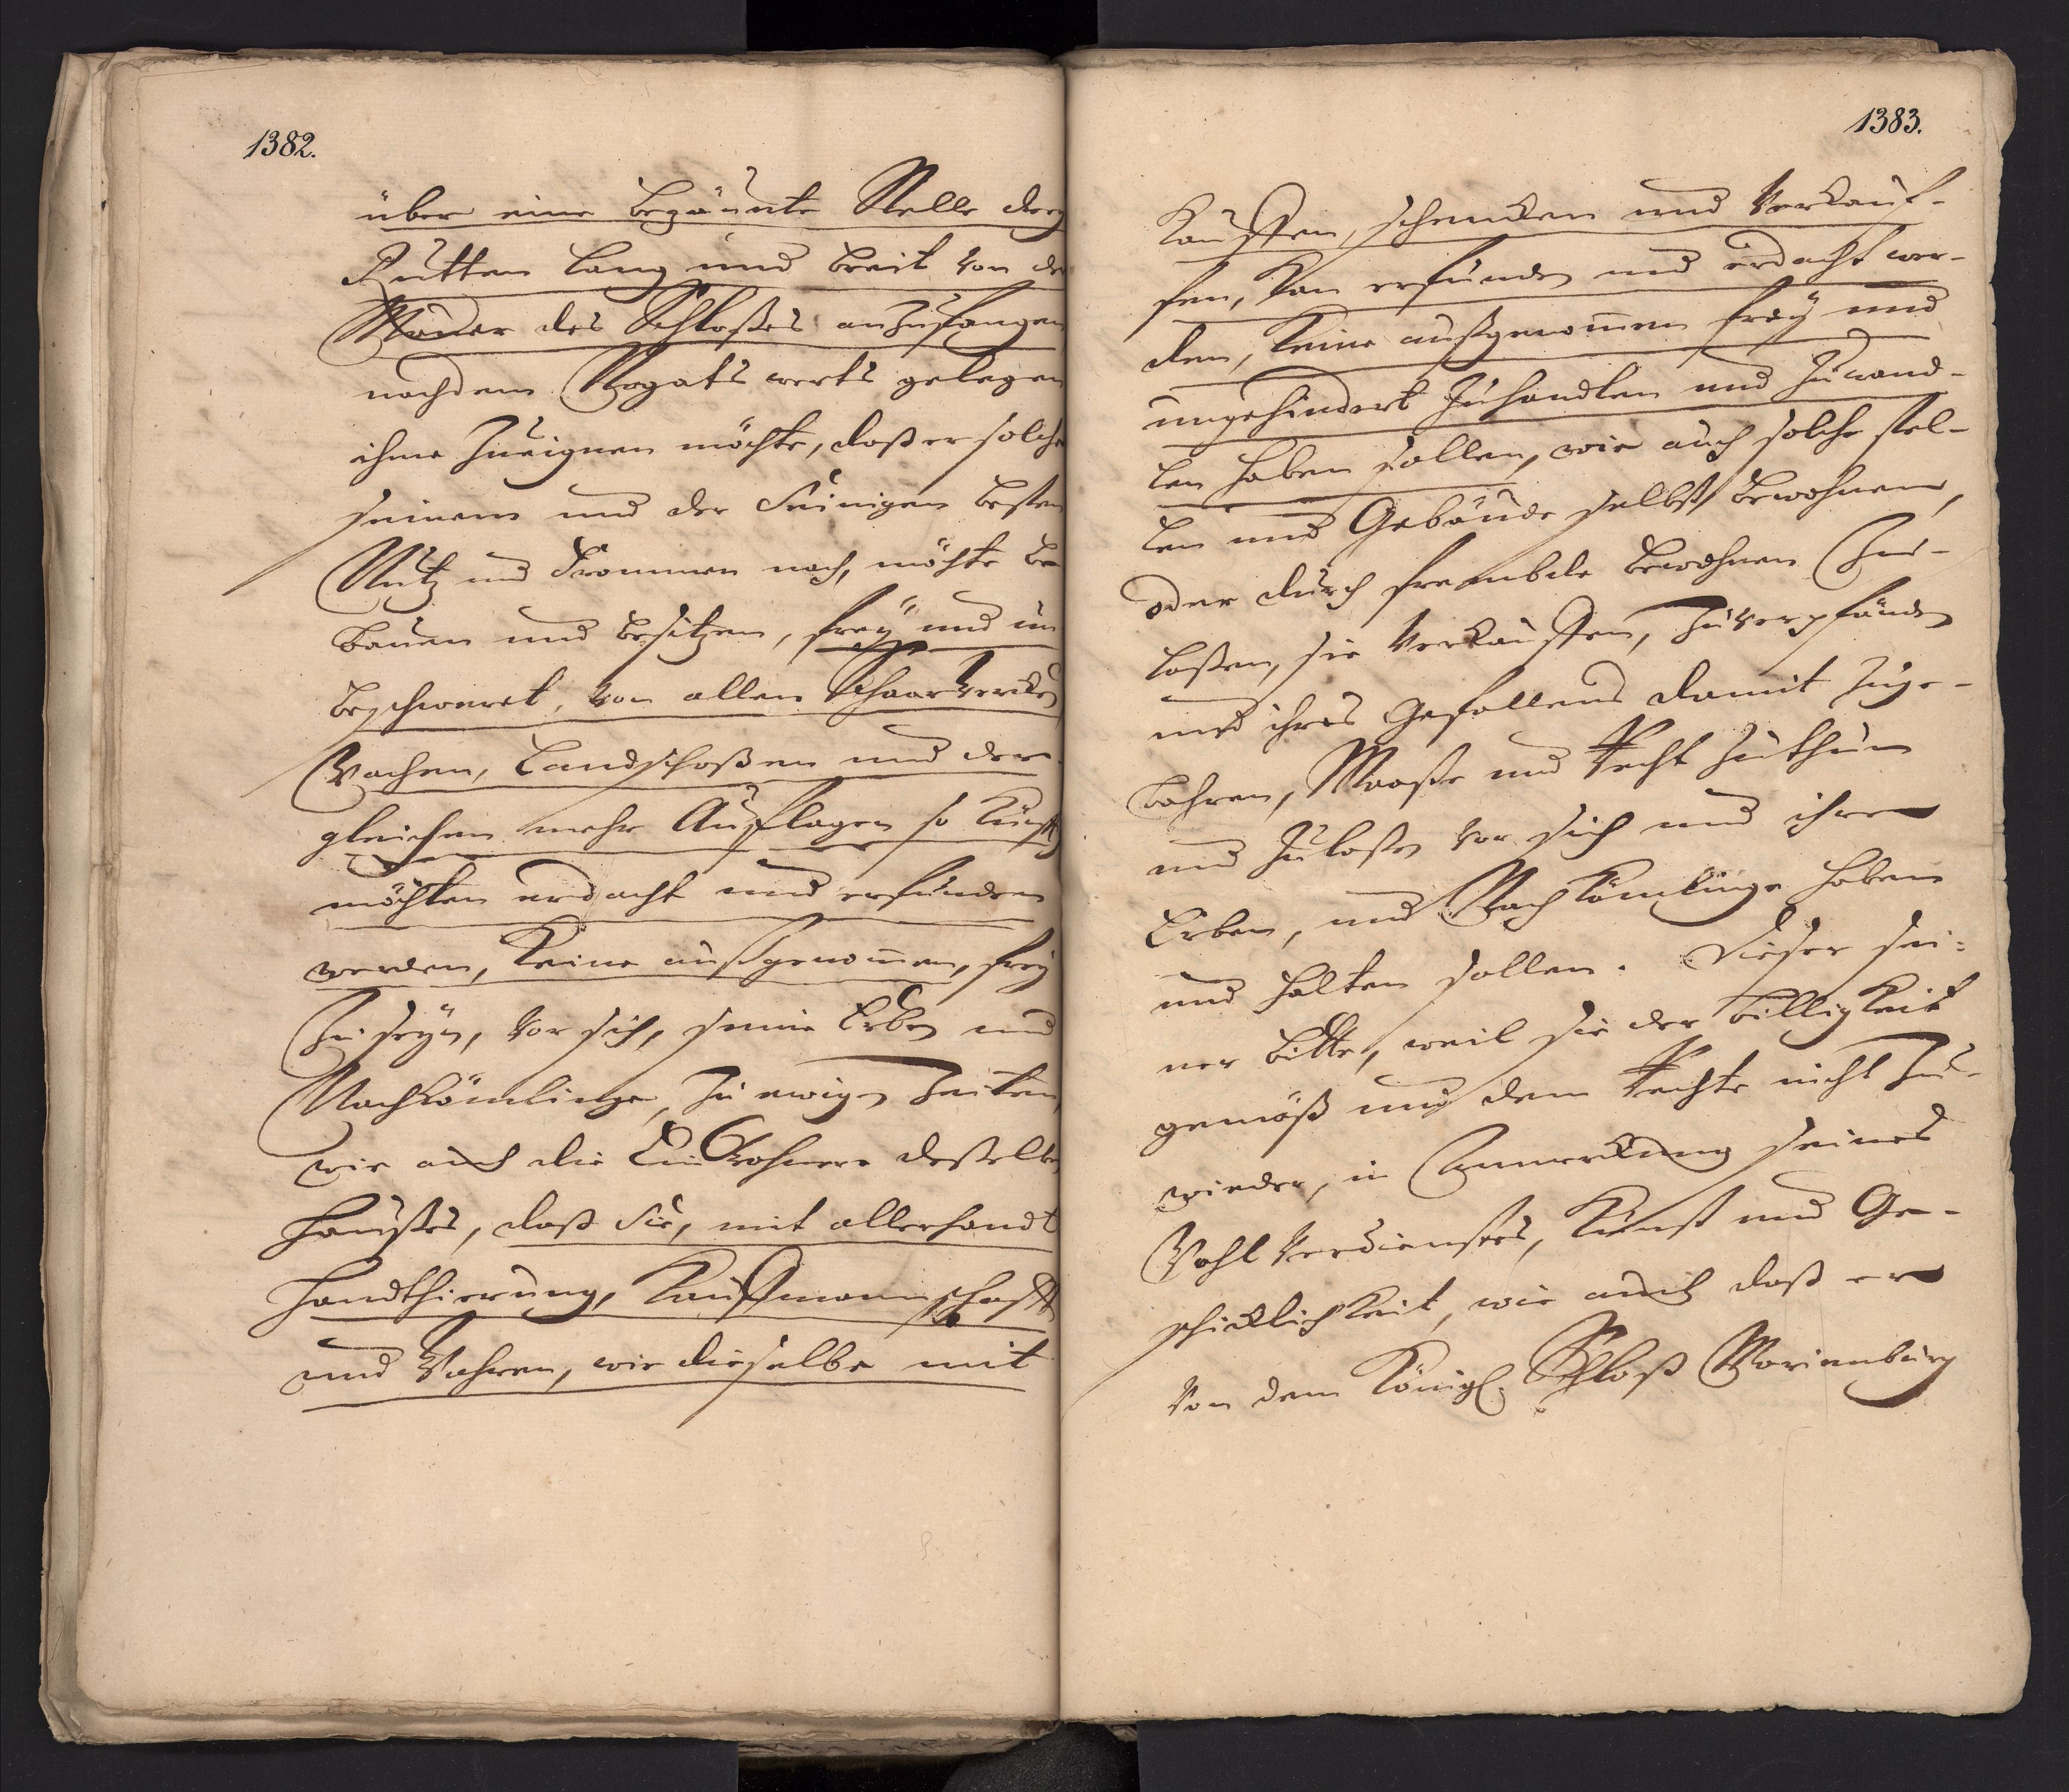 1382.
über eine bezäunte Stelle drey
Rutten lang und breit von der
Mauer des Schloßes anzufangen
nach dem Nogats werts gelegen
ihme zueignen möchte, daß er solche
seinem und der Seinigen besten
Nutz und Frommen nach, möchte be
bauen und besitzen, frey und un
beschweret, von allen Schaarwercken
Wachen, Landschoßen und der
gleichen mehr Aufflagen so künfft
möchten erdacht und erfunden
werden, keine außgenommen, frey
zu seyn, vor sich, seine Erben und
Nachkömlinge, zu ewigen Zeiten,
wie auch die Einwohnere deßelben
Haußes, daß Sie, mit allerhandt
Handthierung, Kauffmannschafft
und Wahren, wie dieselbe mit
1383.
Kauffen, schencken und Verkauf-
fen, kan erfunden und erdacht wer-
den, keine außgenommen frey und
ungehindert zuhandlen und zuwand-
len haben sollen, wie auch solche stel-
len und Gebäude selbst bewohnen,
oder durch frembde bewohnen zu-
laßen, sie Verkauffen, zu verpfänden
und ihres Gefallens damit zuge-
bahren, Maaße und Recht zuthun
und zulaßen vor sich und ihren
Erben, und Nachkömlinge haben
und halten sollen. Dieser sei-
ner Bitte, weil sie der Billigkeit
gemäß und dem Rechte nicht zu-
wieder, in Anmerckung seines
Wohl Verdienstes, Kunst und Ge-
schicklichkeit, wie auch daß er
von dem Königl. Schloß Marienburg